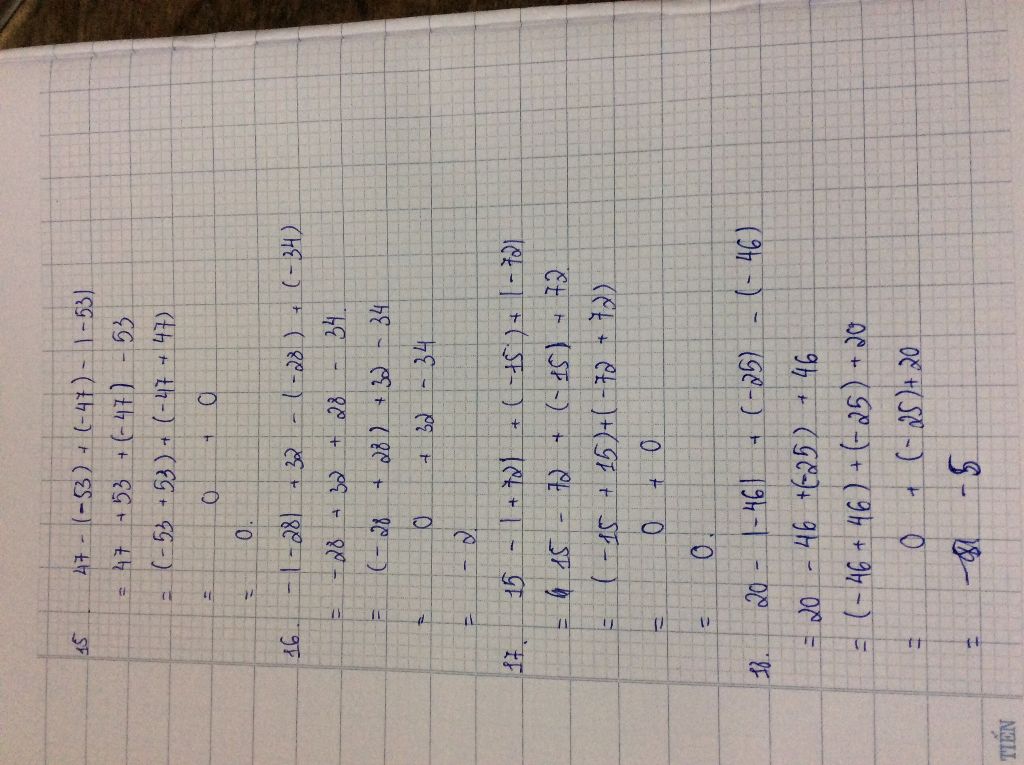 15 47 - (-53) + (-47) - |-53|
= 47 + 53 + (-47) - 53
= (-53 + 53) + (-47 + 47)
= 0 + 0
= 0.
16. -|-28| + 32 - (-28) + (-34)
= -28 + 32 + 28 - 34.
= (-28 + 28) + 32 - 34
= 0 + 32 - 34
= -2.
17. 15 - |+72| + (-15) + |-72|
= 15 - 72 + (-15) + 72.
= (-15 + 15) + (-72 + 72)
= 0 + 0
= 0.
18. 20 - |-46| + (-25) - (-46)
= 20 - 46 + (-25) + 46
= (-46 + 46) + (-25) + 20
= 0 + (-25) + 20
= -5
TIẾN